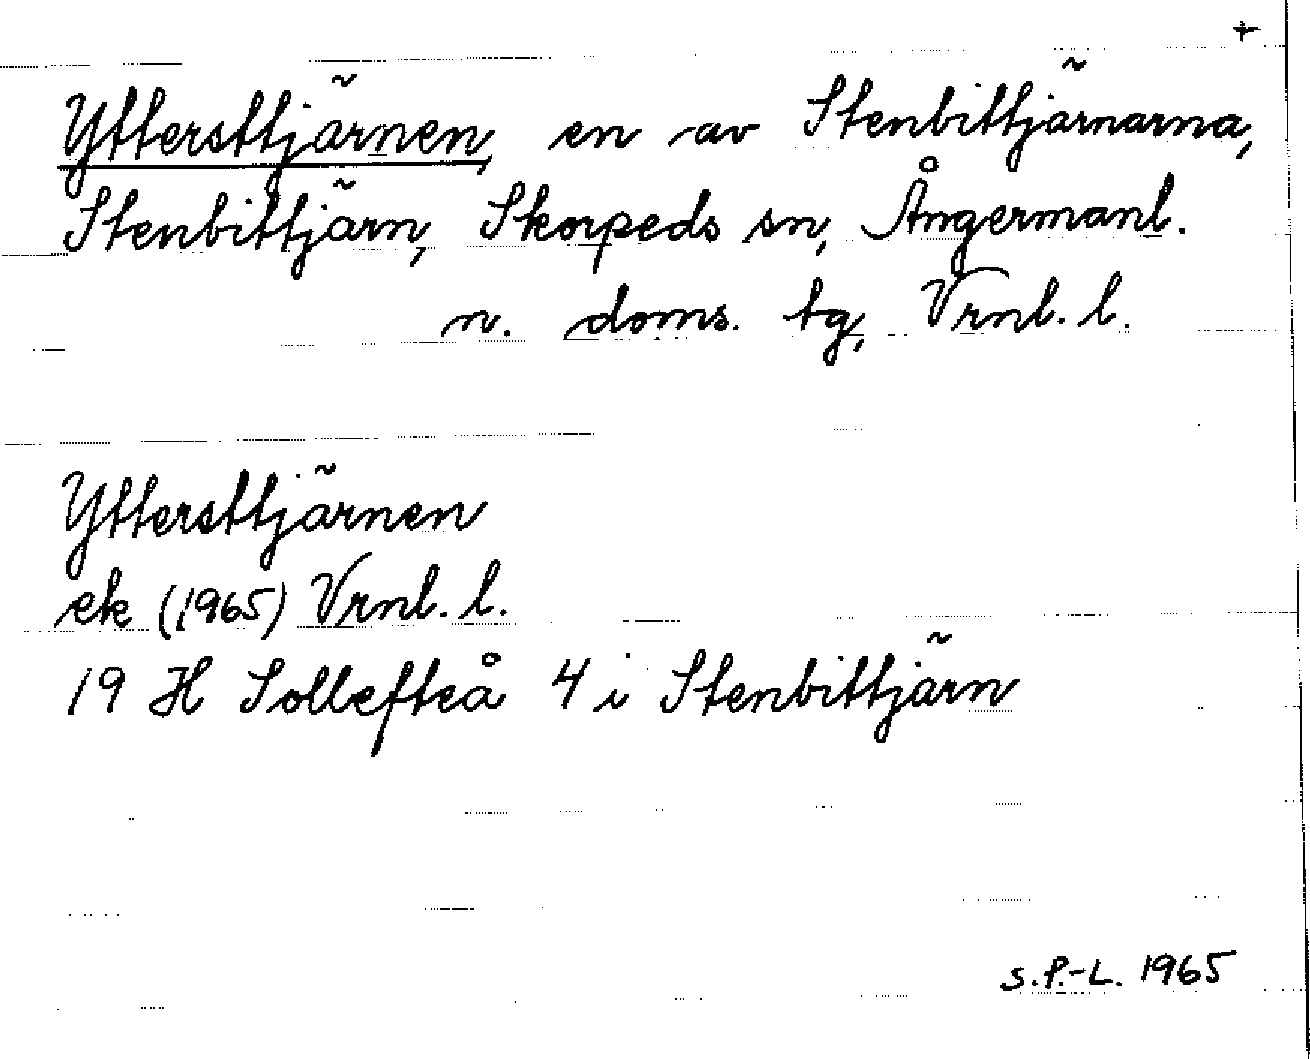 +
Yttersttjärnen, en av Stenbittjärnarna,
Stenbittjärn, Skorpeds sn, Ångermanl.
n. doms. tg, Vrnl. l.
Yttersttjärnen
ek (1965) Vrnl. l.
19 H Sollefteå 4 i Stenbittjärn
S.P.-L. 1965